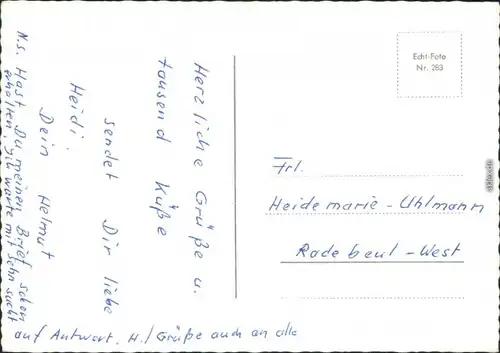 Herzliche Grüße u.
tausend Küße
sendet Dir liebe
Heidi.
Dein Helmut
N.s. Hast Du meinen Brief schon
erhalten. Ich warte mit Sehnsucht
auf Antwort. H./ Grüße auch an alle
Echt-Foto
Nr. 283
Frl.
Heidemarie - Uhlmann
Radebeul - West